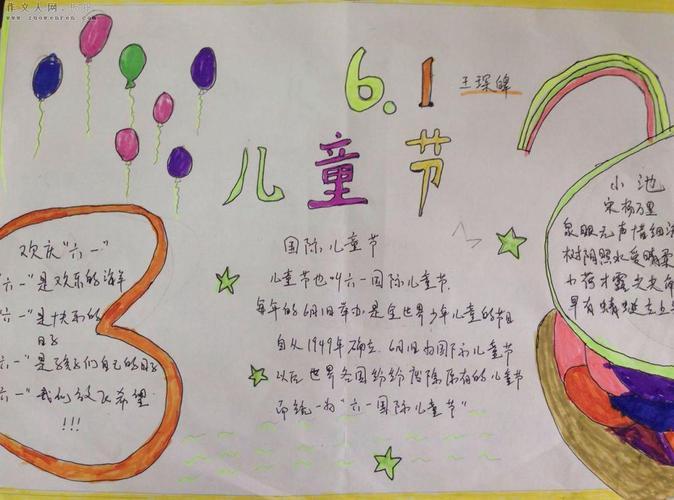 作文人网
www.zuowenren.com
6.1
王琛
儿童节
欢庆"六一"
六一"是欢乐的海洋
六一"是快乐的
日子
六一"是孩子们自己的日子
六一"我们放飞希望
!!!
国际儿童节
儿童节也叫六一国际儿童节.
每年的6月1日举办,是全世界少年儿童的节日
自从1949年确立6月1日为国际儿童节
以后世界各国纷纷废除原有的儿童节
而统一为"六一国际儿童节"
小池
宋杨万里
泉眼无声惜细流
树阴照水爱晴柔
小荷才露尖尖角
早有蜻蜓立上